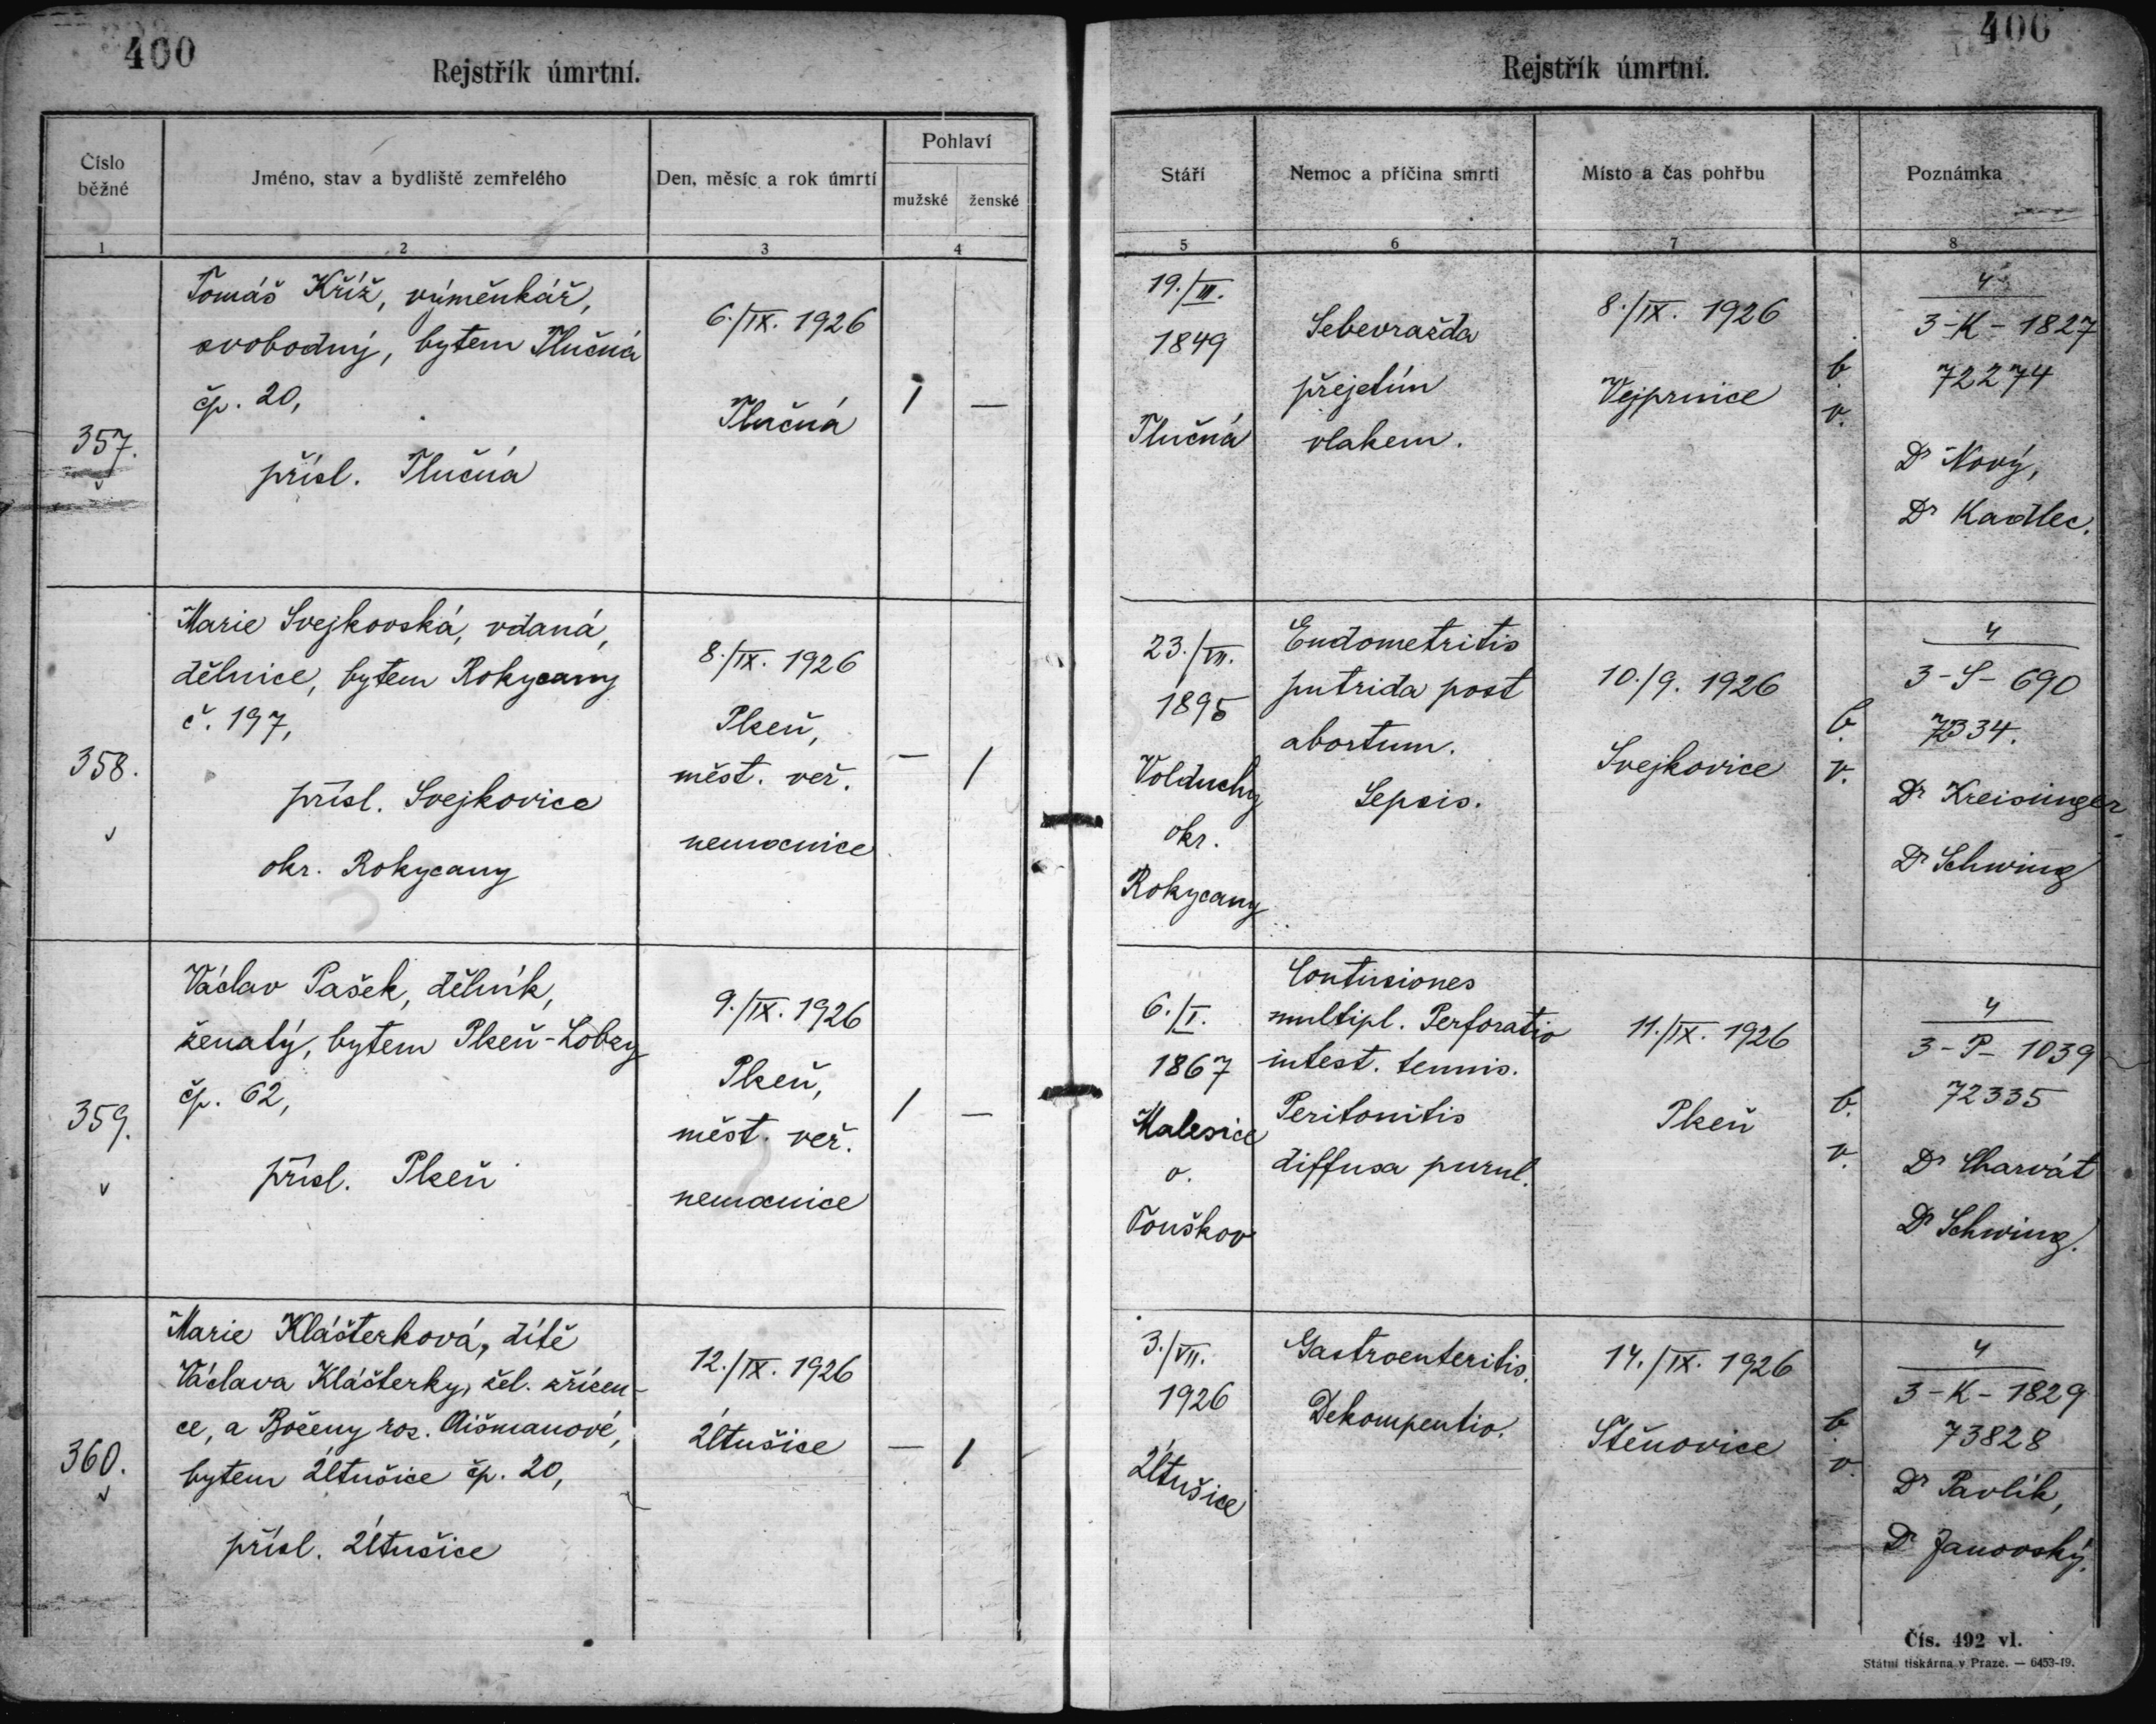 400
Rejstřík úmrtní.
Číslo běžné
Jméno, stav a bydliště zemřelého
Den, měsíc a rok úmrtí
Pohlaví
mužské
ženské
1
2
3
4
Tomáš Kříž, výměnkář,
svobodný, bytem Tlučná
čp. 20,
přísl. Tlučná
357.
6./IX. 1926
Tlučná
/
—
Marie Svejkovská, vdaná,
dělnice, bytem Rokycany
č. 197,
358.
přísl. Svejkovice
okr. Rokycany
8./IX. 1926
Plzeň,
měst. veř.
nemocnice
—
/
Václav Pašek, dělník,
ženatý, bytem Plzeň-Lobzy
čp. 62,
359.
přísl. Plzeň
9./IX. 1926
Plzeň,
měst. veř.
nemocnice
/
—
Marie Klášterková, dítě
Václava Klášterky, žel. zřízen-
ce, a Boženy roz. Aišmanové,
360.
bytem Útušice čp. 20,
přísl. Útušice
12./IX. 1926
Útušice
—
/
400
Rejstřík úmrtní.
Stáří
Nemoc a příčina smrti
Místo a čas pohřbu
Poznámka
5
6
7
8
19./III.
1849
Tlučná
Sebevražda
přejetím
vlakem.
8./IX. 1926
Vejprnice
b.
v.
4
3-K-1827
72274
Dr Nový,
Dr Kadlec.
23./VII.
1895
Volduchy
okr.
Rokycany
Endometritis
putrida post
abortum.
Sepsis.
10./9. 1926
Svejkovice
b.
v.
4
3-S-690
Dr Kreisinger
Dr Schwing
6./I.
1867
Malesice
o.
Touškov
Contusiones
multipl. Perforatio
intest. tennis.
Peritonitis
diffusa purul.
11./IX. 1926
Plzeň
b.
v.
4
3-P-1039
72335
Dr Charvát
Dr Schwing.
3./VII.
1926
Útušice
Gastroenteritis.
Dekompentio.
14./IX. 1926
Štěnovice
b.
v.
4
3-K-1829
73828
Dr Pavlík,
Dr Janovský.
Čís. 492 vl.
Státní tiskárna v Praze. — 6453-19.